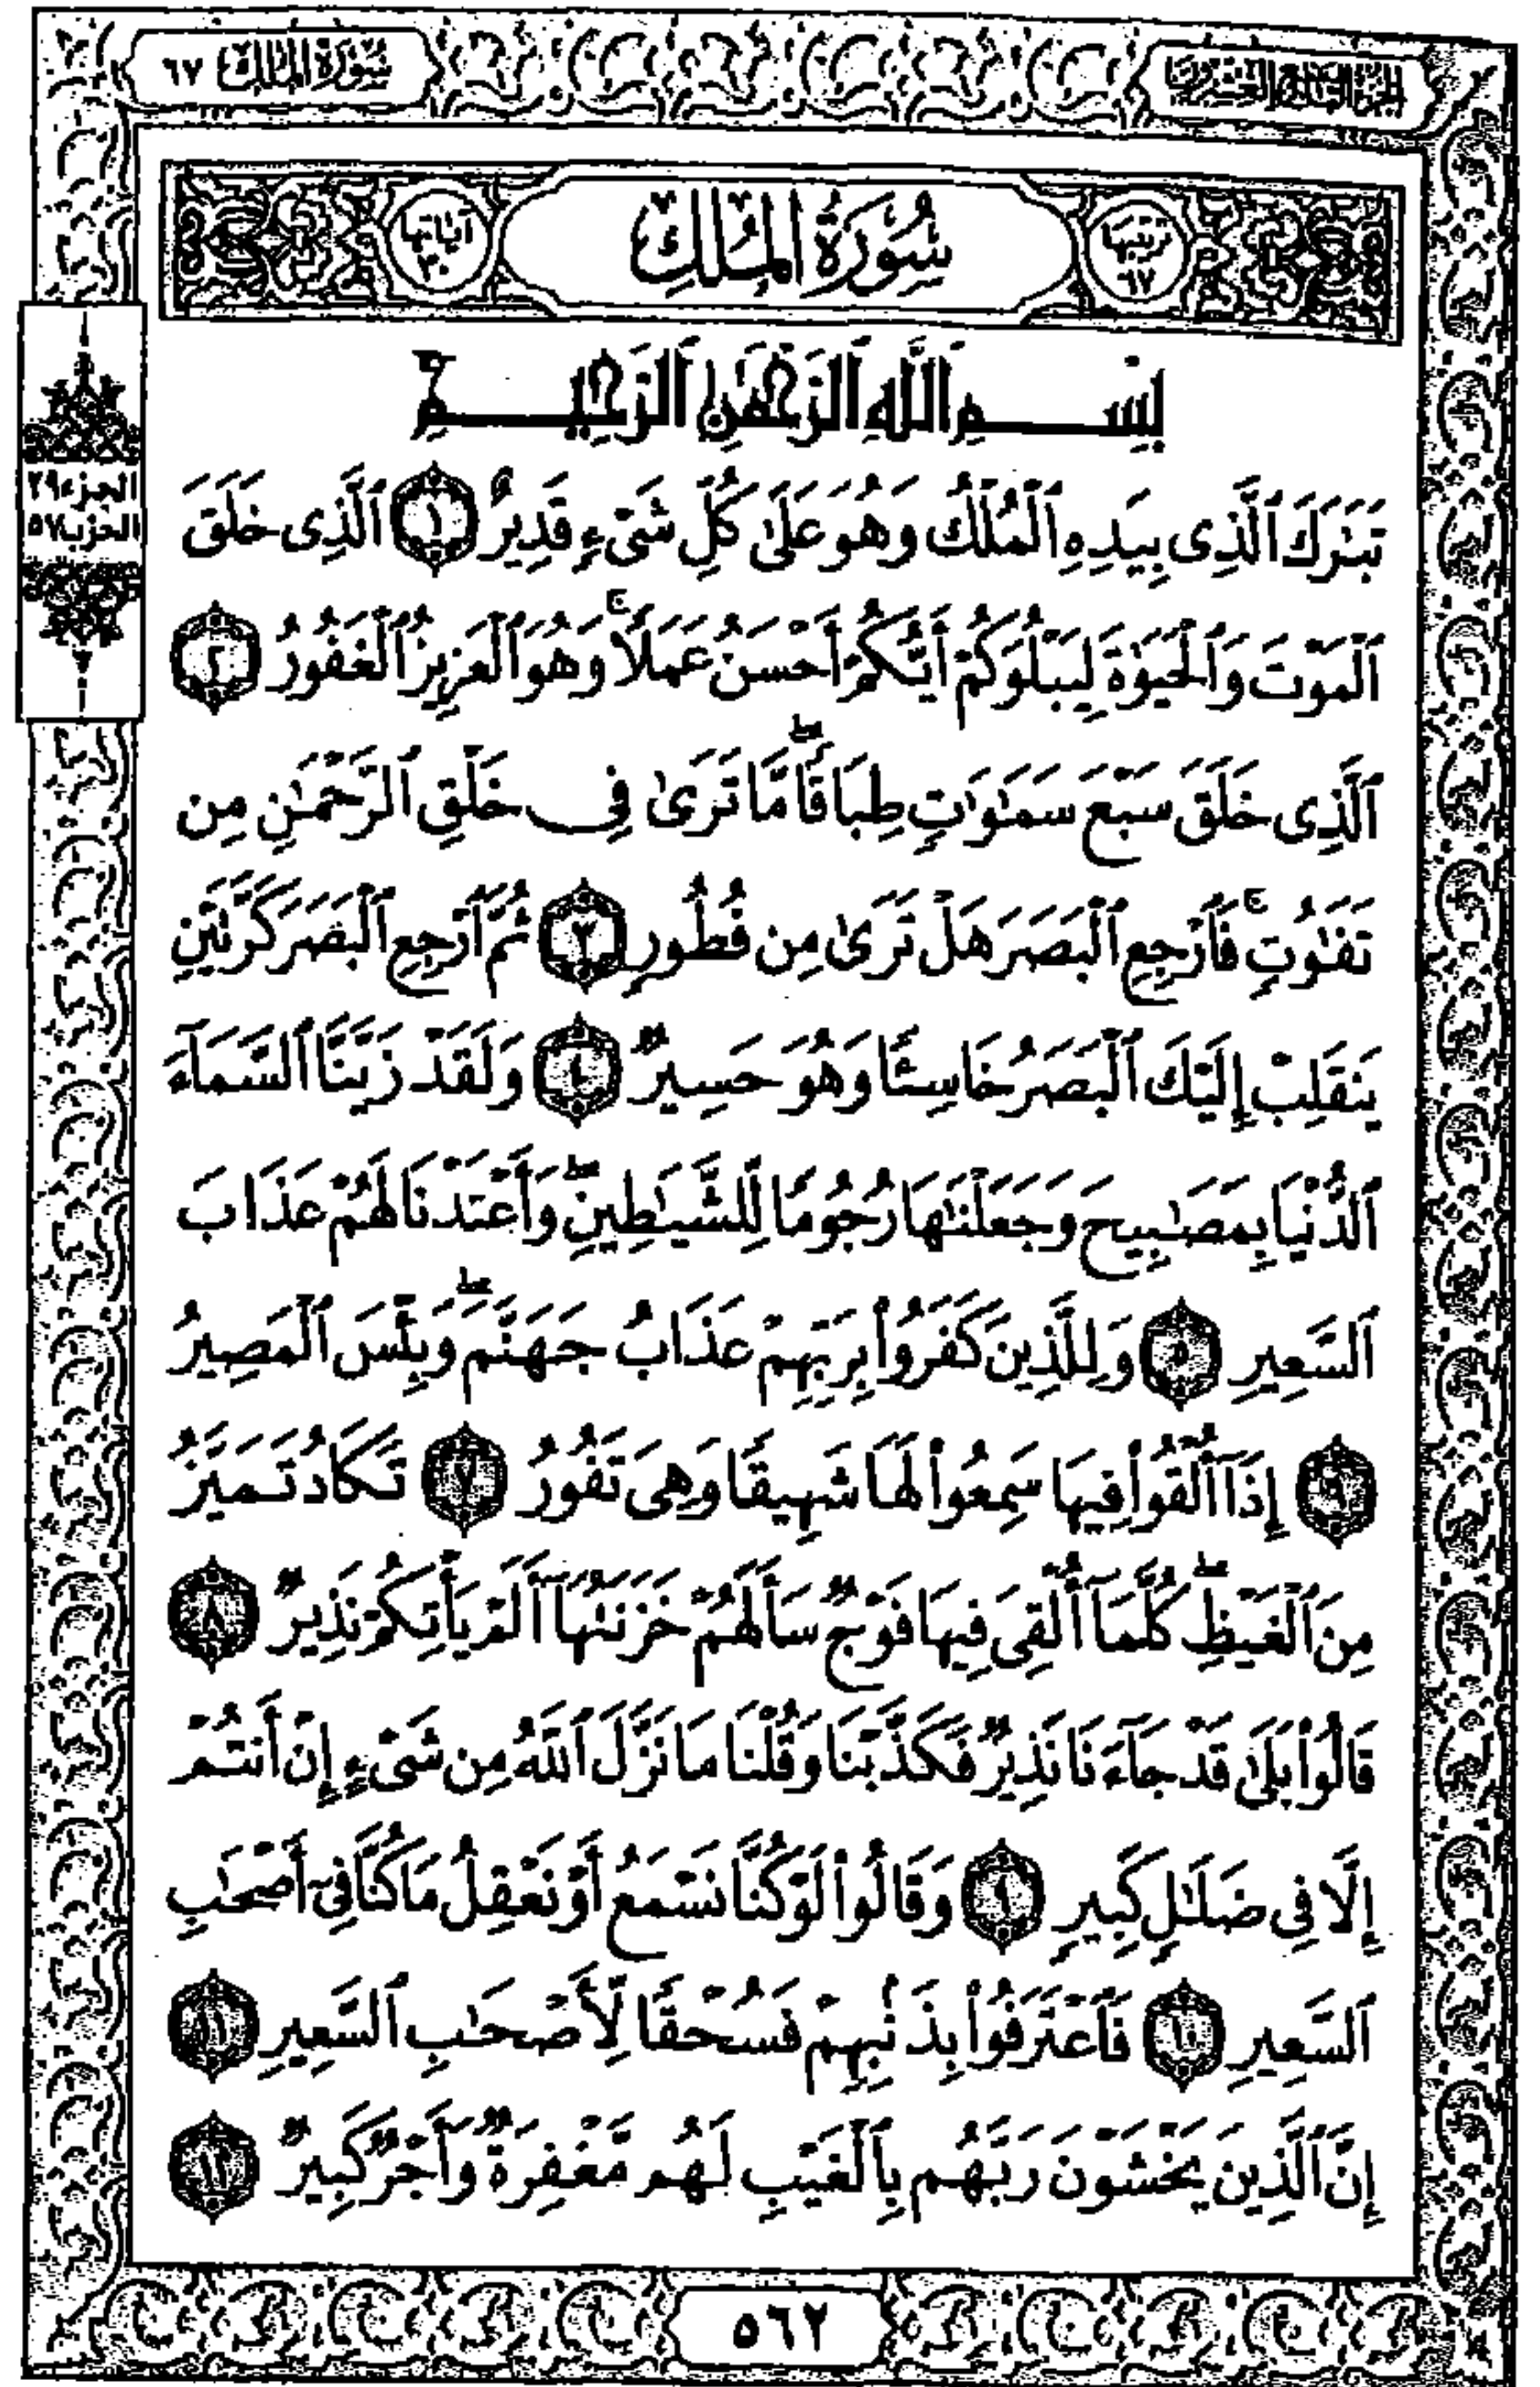 الجزء التاسع والعشرون
سورة الملك ٦٧
ترتيبها ٦٧
سُورَةُ المُلْكِ
آياتها ٣٠
بِسْمِ ٱللَّهِ ٱلرَّحْمَٰنِ ٱلرَّحِيمِ
الجزء ٢٩
الحزب ٥٧
تَبَٰرَكَ ٱلَّذِى بِيَدِهِ ٱلْمُلْكُ وَهُوَ عَلَىٰ كُلِّ شَىْءٍ قَدِيرٌ ١ ٱلَّذِى خَلَقَ
ٱلْمَوْتَ وَٱلْحَيَوٰةَ لِيَبْلُوَكُمْ أَيُّكُمْ أَحْسَنُ عَمَلًا ۚ وَهُوَ ٱلْعَزِيزُ ٱلْغَفُورُ ٢
ٱلَّذِى خَلَقَ سَبْعَ سَمَٰوَٰتٍ طِبَاقًا ۖ مَّا تَرَىٰ فِى خَلْقِ ٱلرَّحْمَٰنِ مِن
تَفَٰوُتٍ ۚ فَٱرْجِعِ ٱلْبَصَرَ هَلْ تَرَىٰ مِن فُطُورٍ ٣ ثُمَّ ٱرْجِعِ ٱلْبَصَرَ كَرَّتَيْنِ
يَنقَلِبْ إِلَيْكَ ٱلْبَصَرُ خَاسِئًا وَهُوَ حَسِيرٌ ٤ وَلَقَدْ زَيَّنَّا ٱلسَّمَآءَ
ٱلدُّنْيَا بِمَصَٰبِيحَ وَجَعَلْنَٰهَا رُجُومًا لِّلشَّيَٰطِينِ ۖ وَأَعْتَدْنَا لَهُمْ عَذَابَ
ٱلسَّعِيرِ ٥ وَلِلَّذِينَ كَفَرُوا۟ بِرَبِّهِمْ عَذَابُ جَهَنَّمَ ۖ وَبِئْسَ ٱلْمَصِيرُ
٦ إِذَآ أُلْقُوا۟ فِيهَا سَمِعُوا۟ لَهَا شَهِيقًا وَهِىَ تَفُورُ ٧ تَكَادُ تَمَيَّزُ
مِنَ ٱلْغَيْظِ ۖ كُلَّمَآ أُلْقِىَ فِيهَا فَوْجٌ سَأَلَهُمْ خَزَنَتُهَآ أَلَمْ يَأْتِكُمْ نَذِيرٌ ٨
قَالُوا۟ بَلَىٰ قَدْ جَآءَنَا نَذِيرٌ فَكَذَّبْنَا وَقُلْنَا مَا نَزَّلَ ٱللَّهُ مِن شَىْءٍ إِنْ أَنتُمْ
إِلَّا فِى ضَلَٰلٍ كَبِيرٍ ٩ وَقَالُوا۟ لَوْ كُنَّا نَسْمَعُ أَوْ نَعْقِلُ مَا كُنَّا فِىٓ أَصْحَٰبِ
ٱلسَّعِيرِ ١٠ فَٱعْتَرَفُوا۟ بِذَنۢبِهِمْ فَسُحْقًا لِّأَصْحَٰبِ ٱلسَّعِيرِ ١١
إِنَّ ٱلَّذِينَ يَخْشَوْنَ رَبَّهُم بِٱلْغَيْبِ لَهُم مَّغْفِرَةٌ وَأَجْرٌ كَبِيرٌ ١٢
٥٦٢